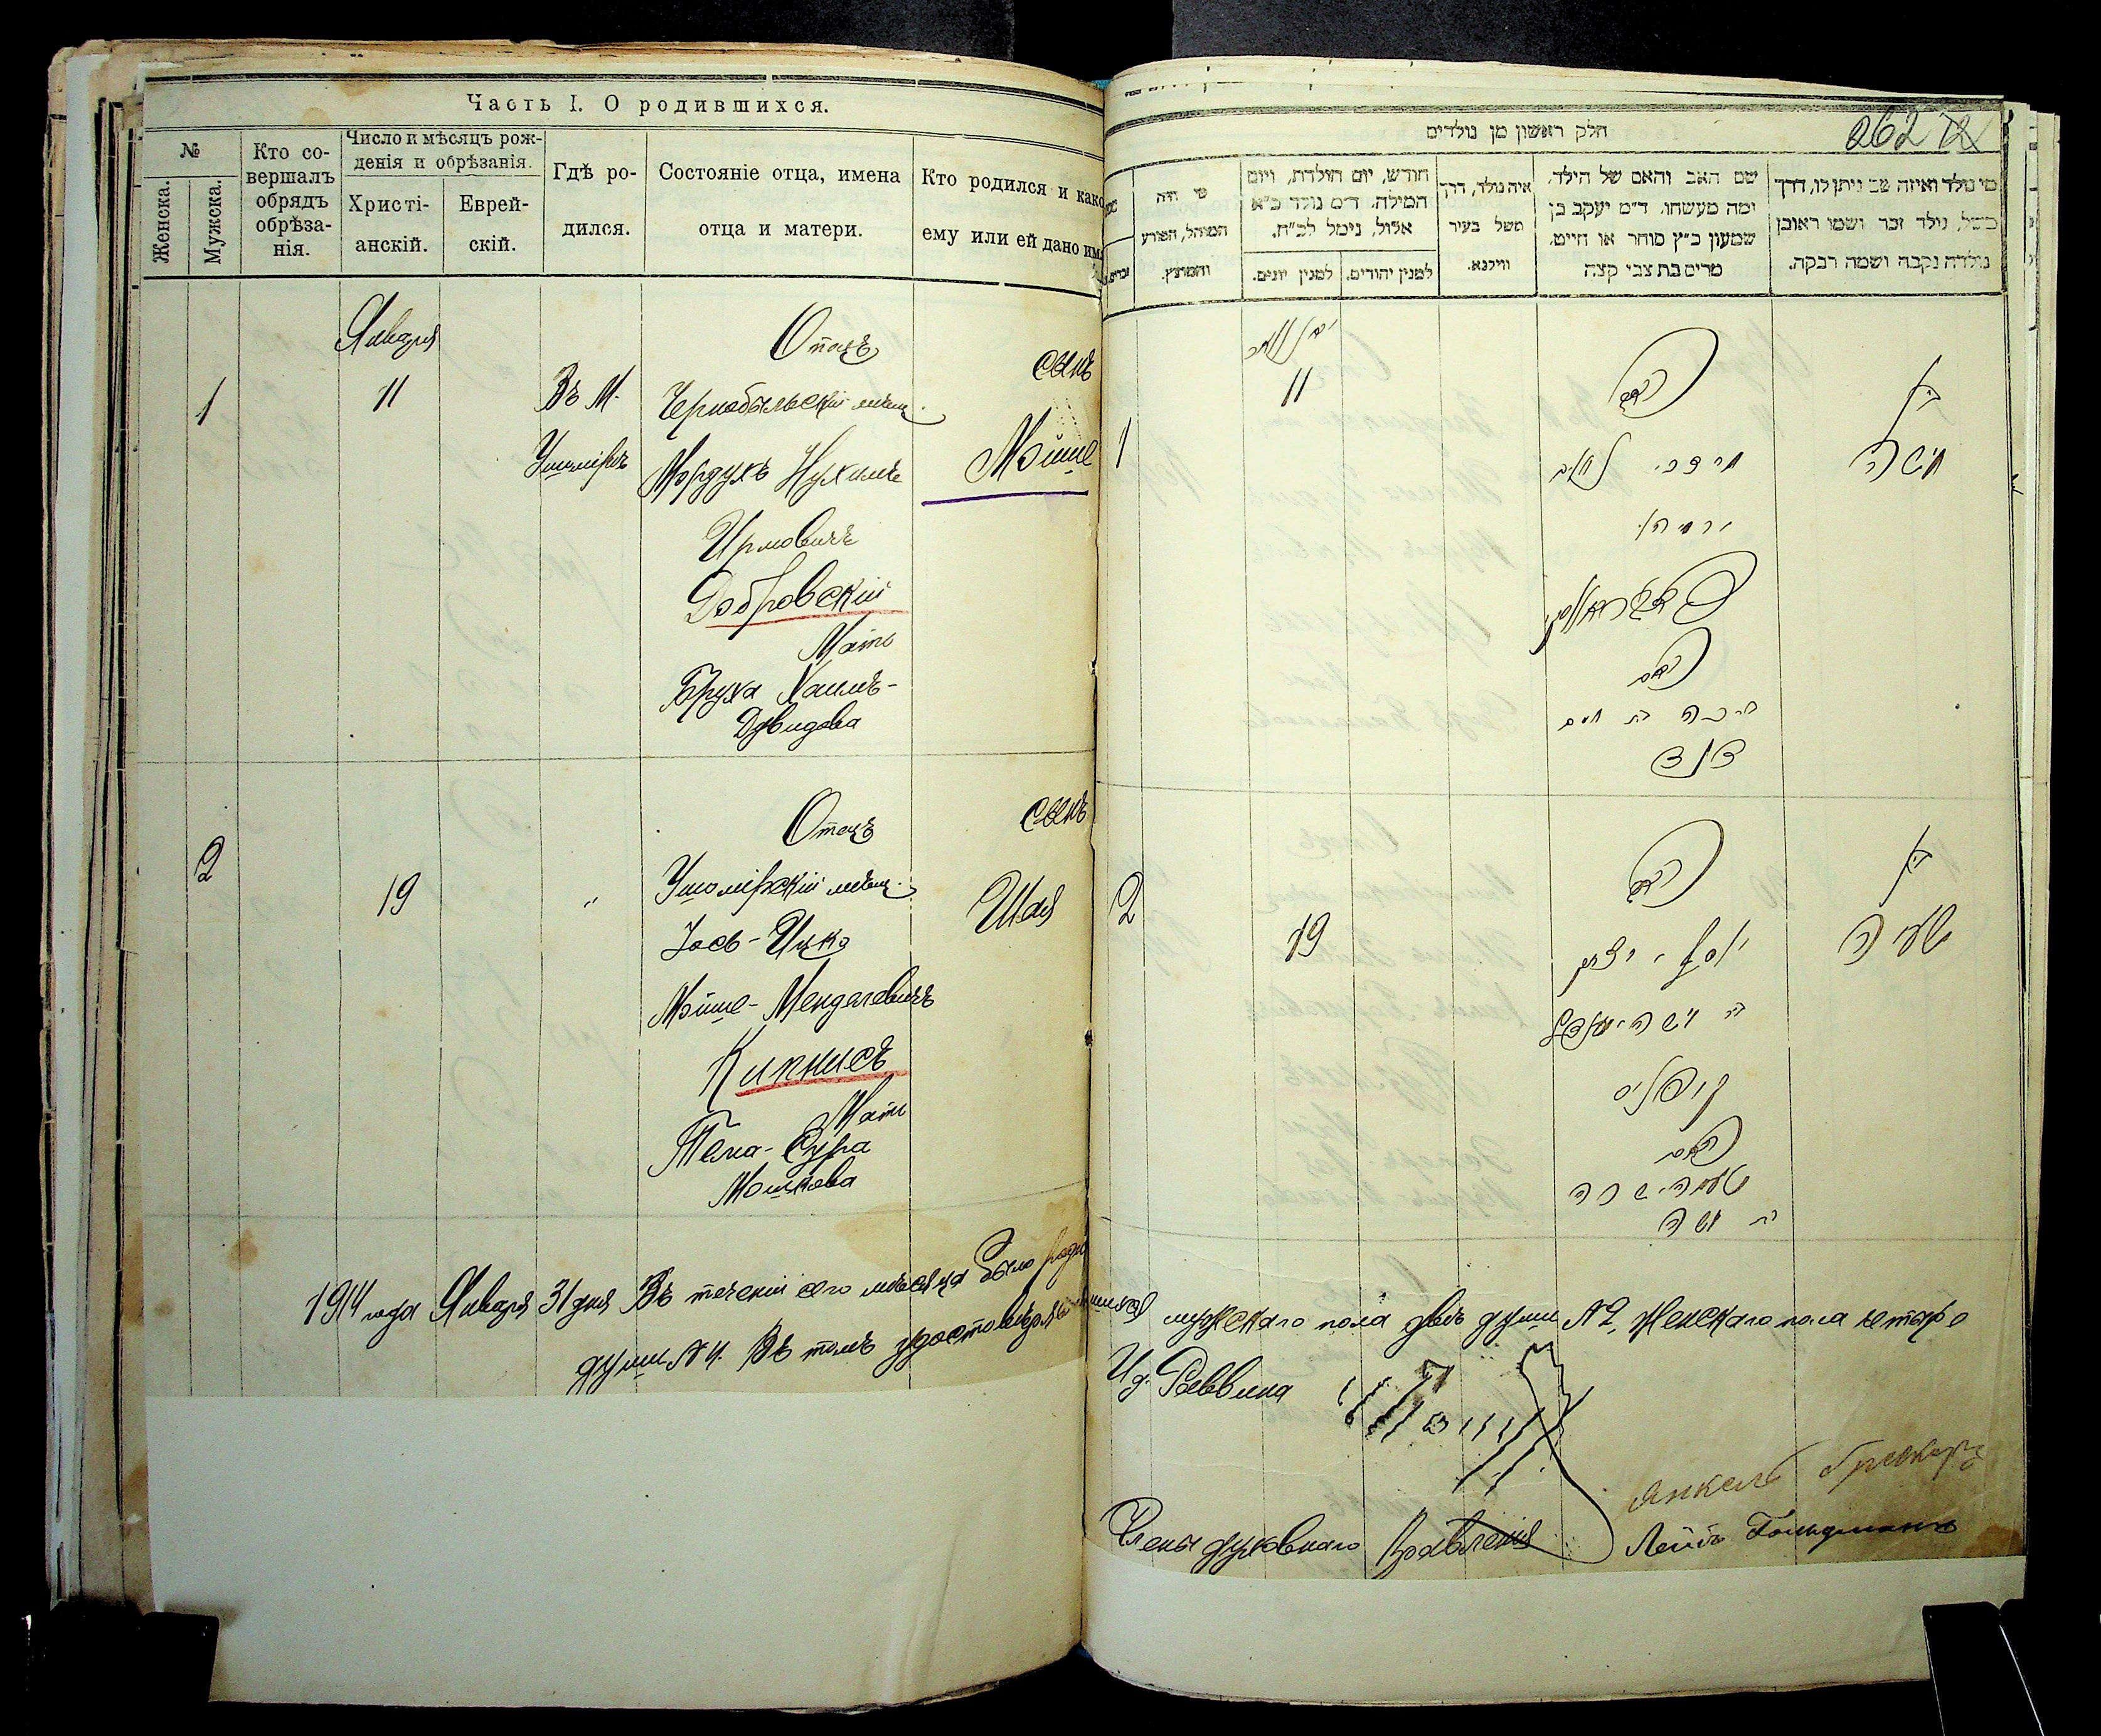 Часть I. О родившихся.
№
Женска.
Мужска.
Кто со-
вершалъ
обрядъ
обрѣза-
нія.
Число и мѣсяцъ рож-
денія и обрѣзанія.
Христі-
анскій.
Еврей-
скій.
Гдѣ ро-
дился.
Состояніе отца, имена
отца и матери.
Кто родился и како
ему или ей дано им
Января
1
11
Въ М.
Ушомірѣ
Отецъ
Чернобыльскій мѣщ.
Мордухъ Нухимъ
Урмовичъ
Добровскій
Мать
Бруха Хаимъ-
Давидова
сынъ
Мойше
2
19
"
Отецъ
Ушомірскій мѣщ.
Іось-Ицко
Мойше-Менделевичъ
Кипнисъ
Мать
Тема-Сура
Мошкова
сынъ
Шая
חלק ראשון מן נולדים
262
מי היה
המוהל, הפורע
והמוצץ.
חודש, יום הולדת, ויום
המילה. ד״מ נולד כ״א
אלול, נימל לכ״ח.
למנין יהודים.
למנין יונים.
איה נולד, דרך
משל בעיר
ווילנא.
שם האב והאם של הילד.
ומה מעשהו. ד״מ יעקב בן
שמעון כ״ץ סוחר או חייט.
מרים בת צבי קצה
מי נולד ואיזה שם ניתן לו, דרך
משל, נולד זכר ושמו ראובן
נולדה נקבה ושמה רבקה.
1
11
האב
מרדכי נחום
האם
ברכה בת חיים
דוד
בן
משה
2
19
האב
יוסף יצחק
קיפניס
האם
בת משה
בן
ישעיה
1914 года Января 31 дня Въ теченіи сего мѣсяца было родившихся мужскаго пола двѣ души № 2, женскаго пола четыре
души № 4. Въ томъ удостовѣряемъ
И. д. Раввина
Члены духовнаго Правленія
Янкель
Лейбъ Гольдманъ